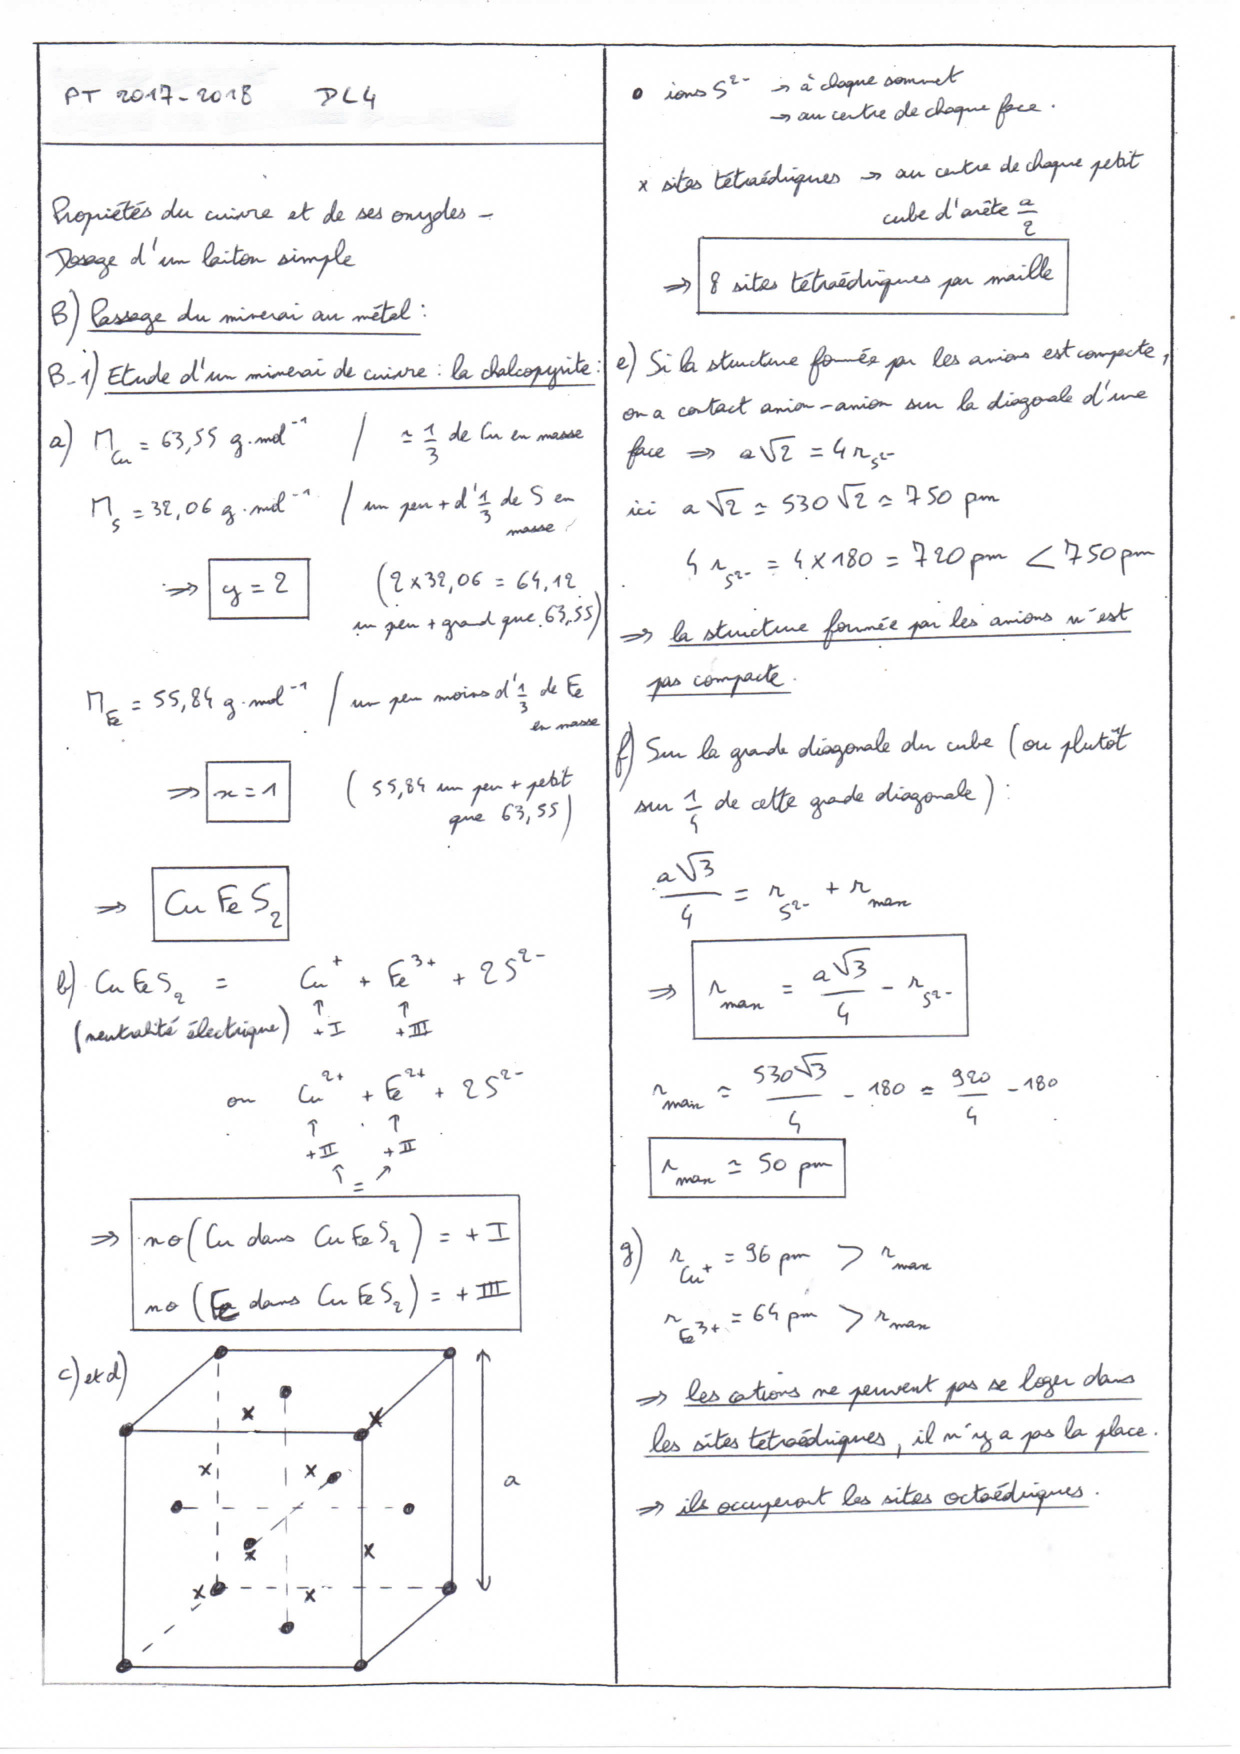 PT 2017-2018 DL4
Propriétés du cuivre et de ses oxydes -
Dosage d'un laiton simple
B) Passage du minerai au métal :
B-1) Etude d'un minerai de cuivre : la chalcopyrite :
a) M_Cu = 63,55 g.mol⁻¹ / ≃ 1/3 de Cu en masse
M_S = 32,06 g.mol⁻¹ / un peu + d'1/3 de S en masse
⇒ y = 2 (2 × 32,06 = 64,12
un peu + grand que 63,55)
M_Fe = 55,84 g.mol⁻¹ / un peu moins d'1/3 de Fe en masse
⇒ x = 1 (55,84 un peu + petit
que 63,55)
⇒ CuFeS₂
b) CuFeS₂ = Cu⁺ + Fe³⁺ + 2S²⁻
(neutralité électrique) ↑ +I ↑ +III
ou Cu²⁺ + Fe²⁺ + 2S²⁻
↑ ↑
+II +II
↑ = ↗
⇒ no(Cu dans CuFeS₂) = +I
no(Fe dans CuFeS₂) = +III
c) et d)
a
• ions S²⁻ → à chaque sommet
→ au centre de chaque face.
x sites tétraédriques → au centre de chaque petit
cube d'arête a/2
⇒ 8 sites tétraédriques par maille
e) Si la structure formée par les anions est compacte,
on a contact anion-anion sur la diagonale d'une
face ⇒ a√2 = 4r_S²⁻
ici a√2 ≃ 530√2 ≃ 750 pm
4r_S²⁻ = 4×180 = 720 pm < 750 pm
⇒ la structure formée par les anions n'est
pas compacte.
f) Sur la grande diagonale du cube (ou plutôt
sur 1/4 de cette grade diagonale) :
a√3/4 = r_S²⁻ + r_max
⇒ r_max = a√3/4 - r_S²⁻
r_max ≃ 530√3/4 - 180 ≃ 920/4 - 180
r_max ≃ 50 pm
g) r_Cu⁺ = 96 pm > r_max
r_Fe³⁺ = 64 pm > r_max
⇒ les cations ne peuvent pas se loger dans
les sites tétraédriques, il n'y a pas la place.
⇒ ils occuperont les sites octaédriques.